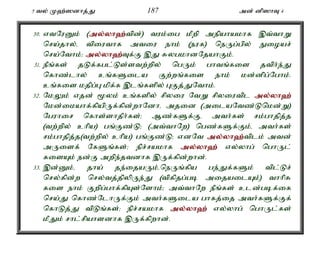 5 வல் முஹ்ஸனாத்து 187 அன் னிஸாவு 4
30. எவரேனும் (அல்லாஹ்வின்) வரம்பை மீறி அநியாயமாக இவ்வாறு
செய்தால், விரைவாக அவரை நாம் (நரக) நெருப்பில் நுழையச்
செய்வோம்: அல்லாஹ்வுக்கு இது சுலபமானதேயாகும்.
31. நீங்கள் தடுக்கபட்டுள்ளவற்றில் பெரும் பாவங்களை தவிர்ந்து
கொண்டால் உங்களுடைய குற்றங்களை நாம் மன்னிப்போம்.
உங்களை மதிப்புமிக்க இடங்களில் புகுத்துவோம்.
32. மேலும் எதன் மூலம் உங்களில் சிலரை வேறு சிலரைவிட அல்லாஹ்
மேன்மையாக்கியிருக்கின்றானோ, அதனை (அடையவேண்டுமென்று)
பேராசை கொள்ளாதீர்கள்; ஆண்களுக்கு, அவர்கள் சம்பாதித்த
(வற்றில் உரிய) பங்குண்டு; (அவ்வாறே) பெண்களுக்கும், அவர்கள்
சம்பாதித்த(வற்றில் உரிய) பங்குண்டு; எனவே அல்லாஹ்விடம் அவன்
அருளைக் கேளுங்கள்; நிச்சயமாக அல்லாஹ் எல்லாப் பொருட்
களையும் நன்கு அறிந்தவனாக இருக்கின்றான்.
33. இன்னும், தாய் தந்தையரும்.நெருங்கிய பந்துக்களும் விட்டுச்
செல்கின்ற செல்வத்திலிருந்து (விகிதப்படி அதையடையும்) வாரிசு
களை நாம் குறிப்பாக்கியுள்ளோம்; அவ்வாறே நீங்கள் உடன்படிக்கை
செய்து கொண்டோருக்கும் அவர்களுடைய பாகத்தை அவர்களுக்குக்
கொடுத்து விடுங்கள்; நிச்சயமாக அல்லாஹ் எல்லாப் பொருட்கள்
மீதும் சாட்சியாளனாக இருக்கிறான்.